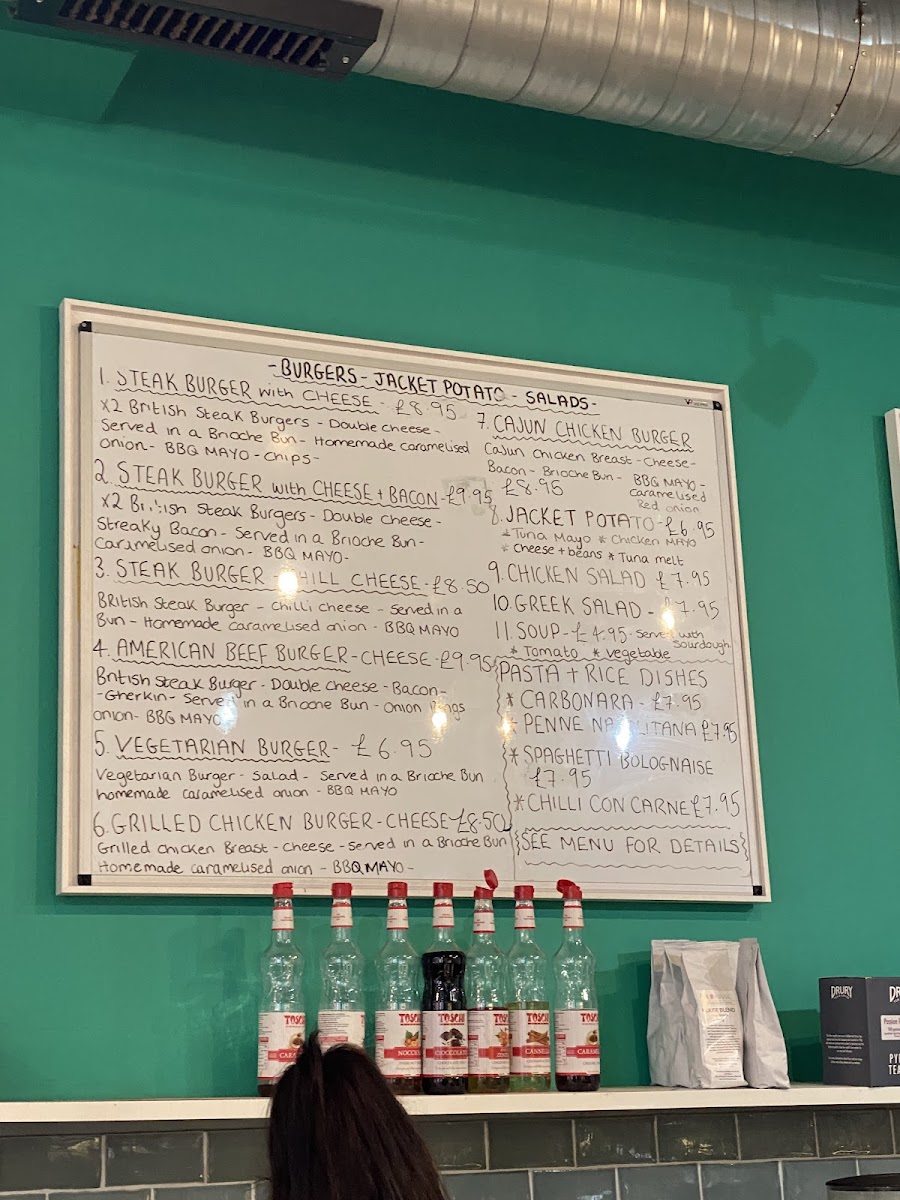 -BURGERS- JACKET POTATO - SALADS-
1. STEAK BURGER with CHEESE - £8.95
X2 British Steak Burgers - Double cheese -
Served in a Brioche Bun - Homemade caramelised
onion - BBQ MAYO - Chips -
2. STEAK BURGER with CHEESE + BACON - £9.95
X2 British Steak Burgers - Double cheese -
Streaky Bacon - Served in a Brioche Bun -
Caramelised onion - BBQ MAYO -
3. STEAK BURGER - CHILL CHEESE - £8.50
British Steak Burger - Chilli cheese - Served in a
Bun - Homemade caramelised onion - BBQ MAYO
4. AMERICAN BEEF BURGER - CHEESE - £9.95
British Steak Burger - Double cheese - Bacon -
- Gherkin - Served in a Brioche Bun - Onion Rings
onion - BBQ MAYO
5. VEGETARIAN BURGER - £6.95
Vegetarian Burger - Salad - Served in a Brioche Bun
homemade caramelised onion - BBQ MAYO
6. GRILLED CHICKEN BURGER - CHEESE £8.50
Grilled chicken Breast - cheese - served in a Brioche Bun
Homemade caramelised onion - BBQ MAYO -
7. CAJUN CHICKEN BURGER
Cajun Chicken Breast - Cheese -
Bacon - Brioche Bun - BBQ MAYO -
£8.95 caramelised
Red onion
8. JACKET POTATO - £6.95
* Tuna Mayo * Chicken MAYO
* Cheese + beans * Tuna melt
9. CHICKEN SALAD £7.95
10. GREEK SALAD - £7.95
11. SOUP - £4.95 - Served with
Sourdough
* Tomato * vegetable
PASTA + RICE DISHES
* CARBONARA - £7.95
* PENNE NAPOLITANA £7.95
* SPAGHETTI BOLOGNAISE
£7.95
* CHILLI CON CARNE £7.95
SEE MENU FOR DETAILS
TOSCHI
TOSCHI
TOSCHI
TOSCHI
TOSCHI
TOSCHI
NOCCIOLA
CIOCCOLATO
DRURY